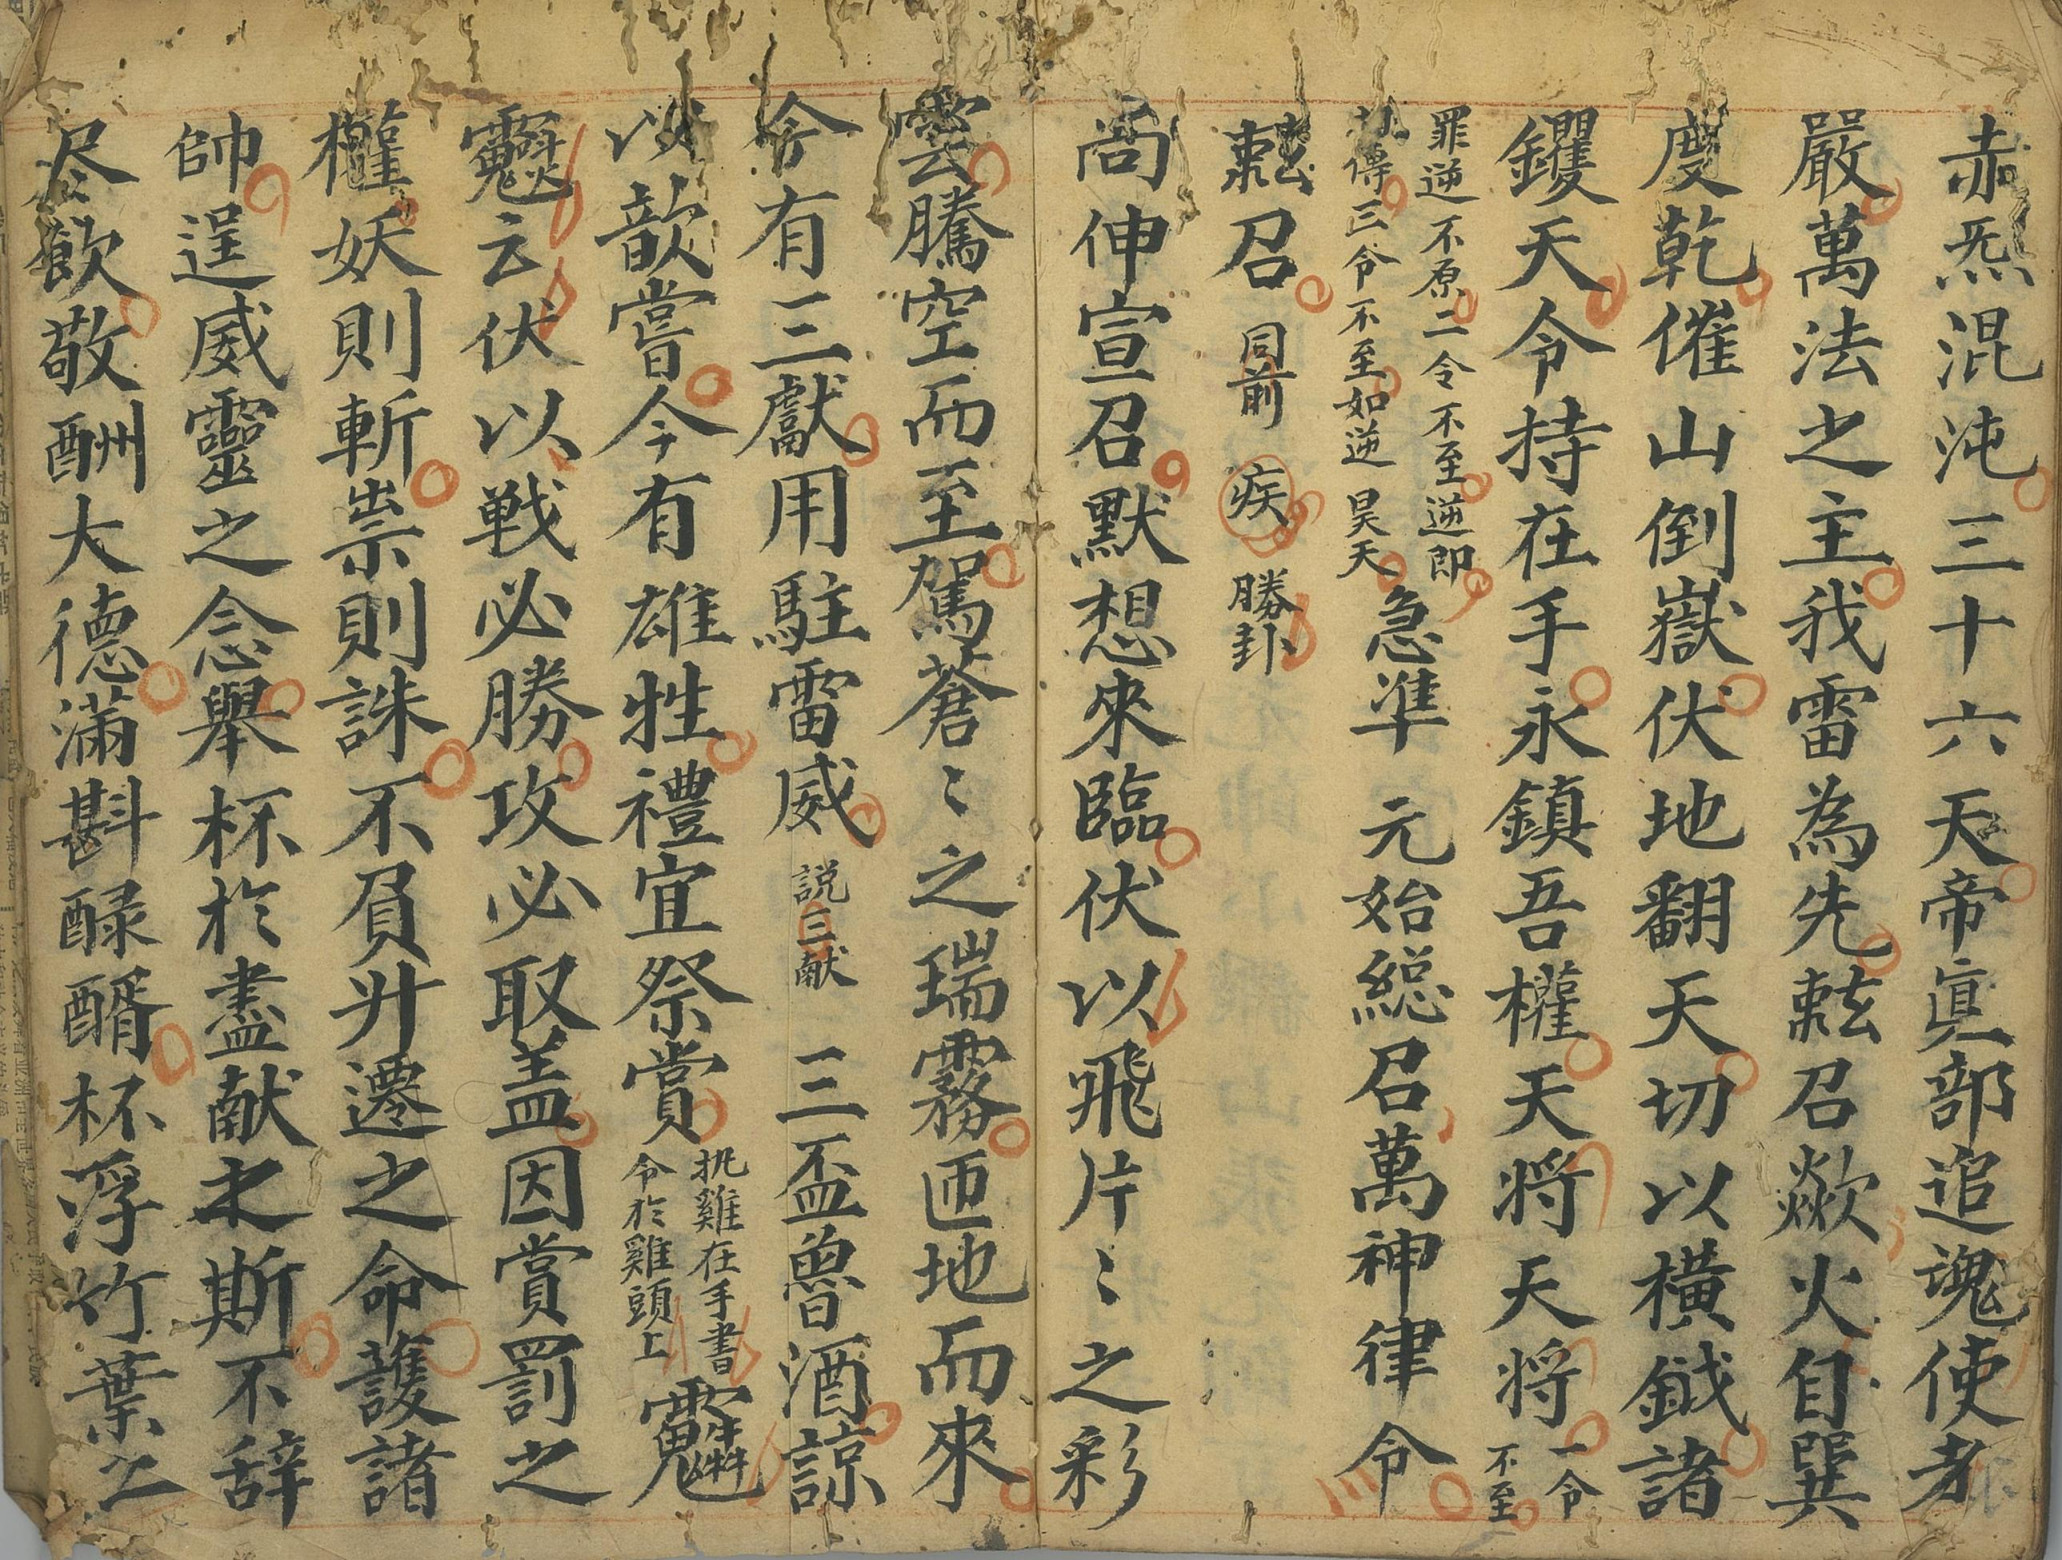 赤炁混沌三十六天帝眞部追魂使者
嚴萬法之主我雷為先敕召歘火自巽
度乾催山倒嶽伏地翻天切以橫鉞諸
钁天令持在手永鎮吾權天將天將一令不至
罪逆不原二令不至逆即
傳三令不至如逆昊天急準元始総召萬神律令
敕召同前疾勝卦
尚伸宣召默想來臨伏以飛片〻之彩
雲騰空而至駕蒼〻之瑞霧匝地而來
今有三獻用駐雷威説三献三盃魯酒諒
以歆嘗今有雄牲禮宜祭賞執雞在手書
令於雞頭上
云伏以戦必勝攻必取盖因賞罰之
權妖則斬祟則誅不負升遷之命護諸
帥逞威靈之念舉杯於盡献之斯不辞
尽飲敬酬大德滿斟醁醑杯浮竹葉之